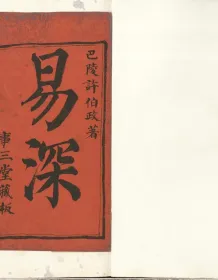 巴陵許伯政著
易深
事三堂藏板